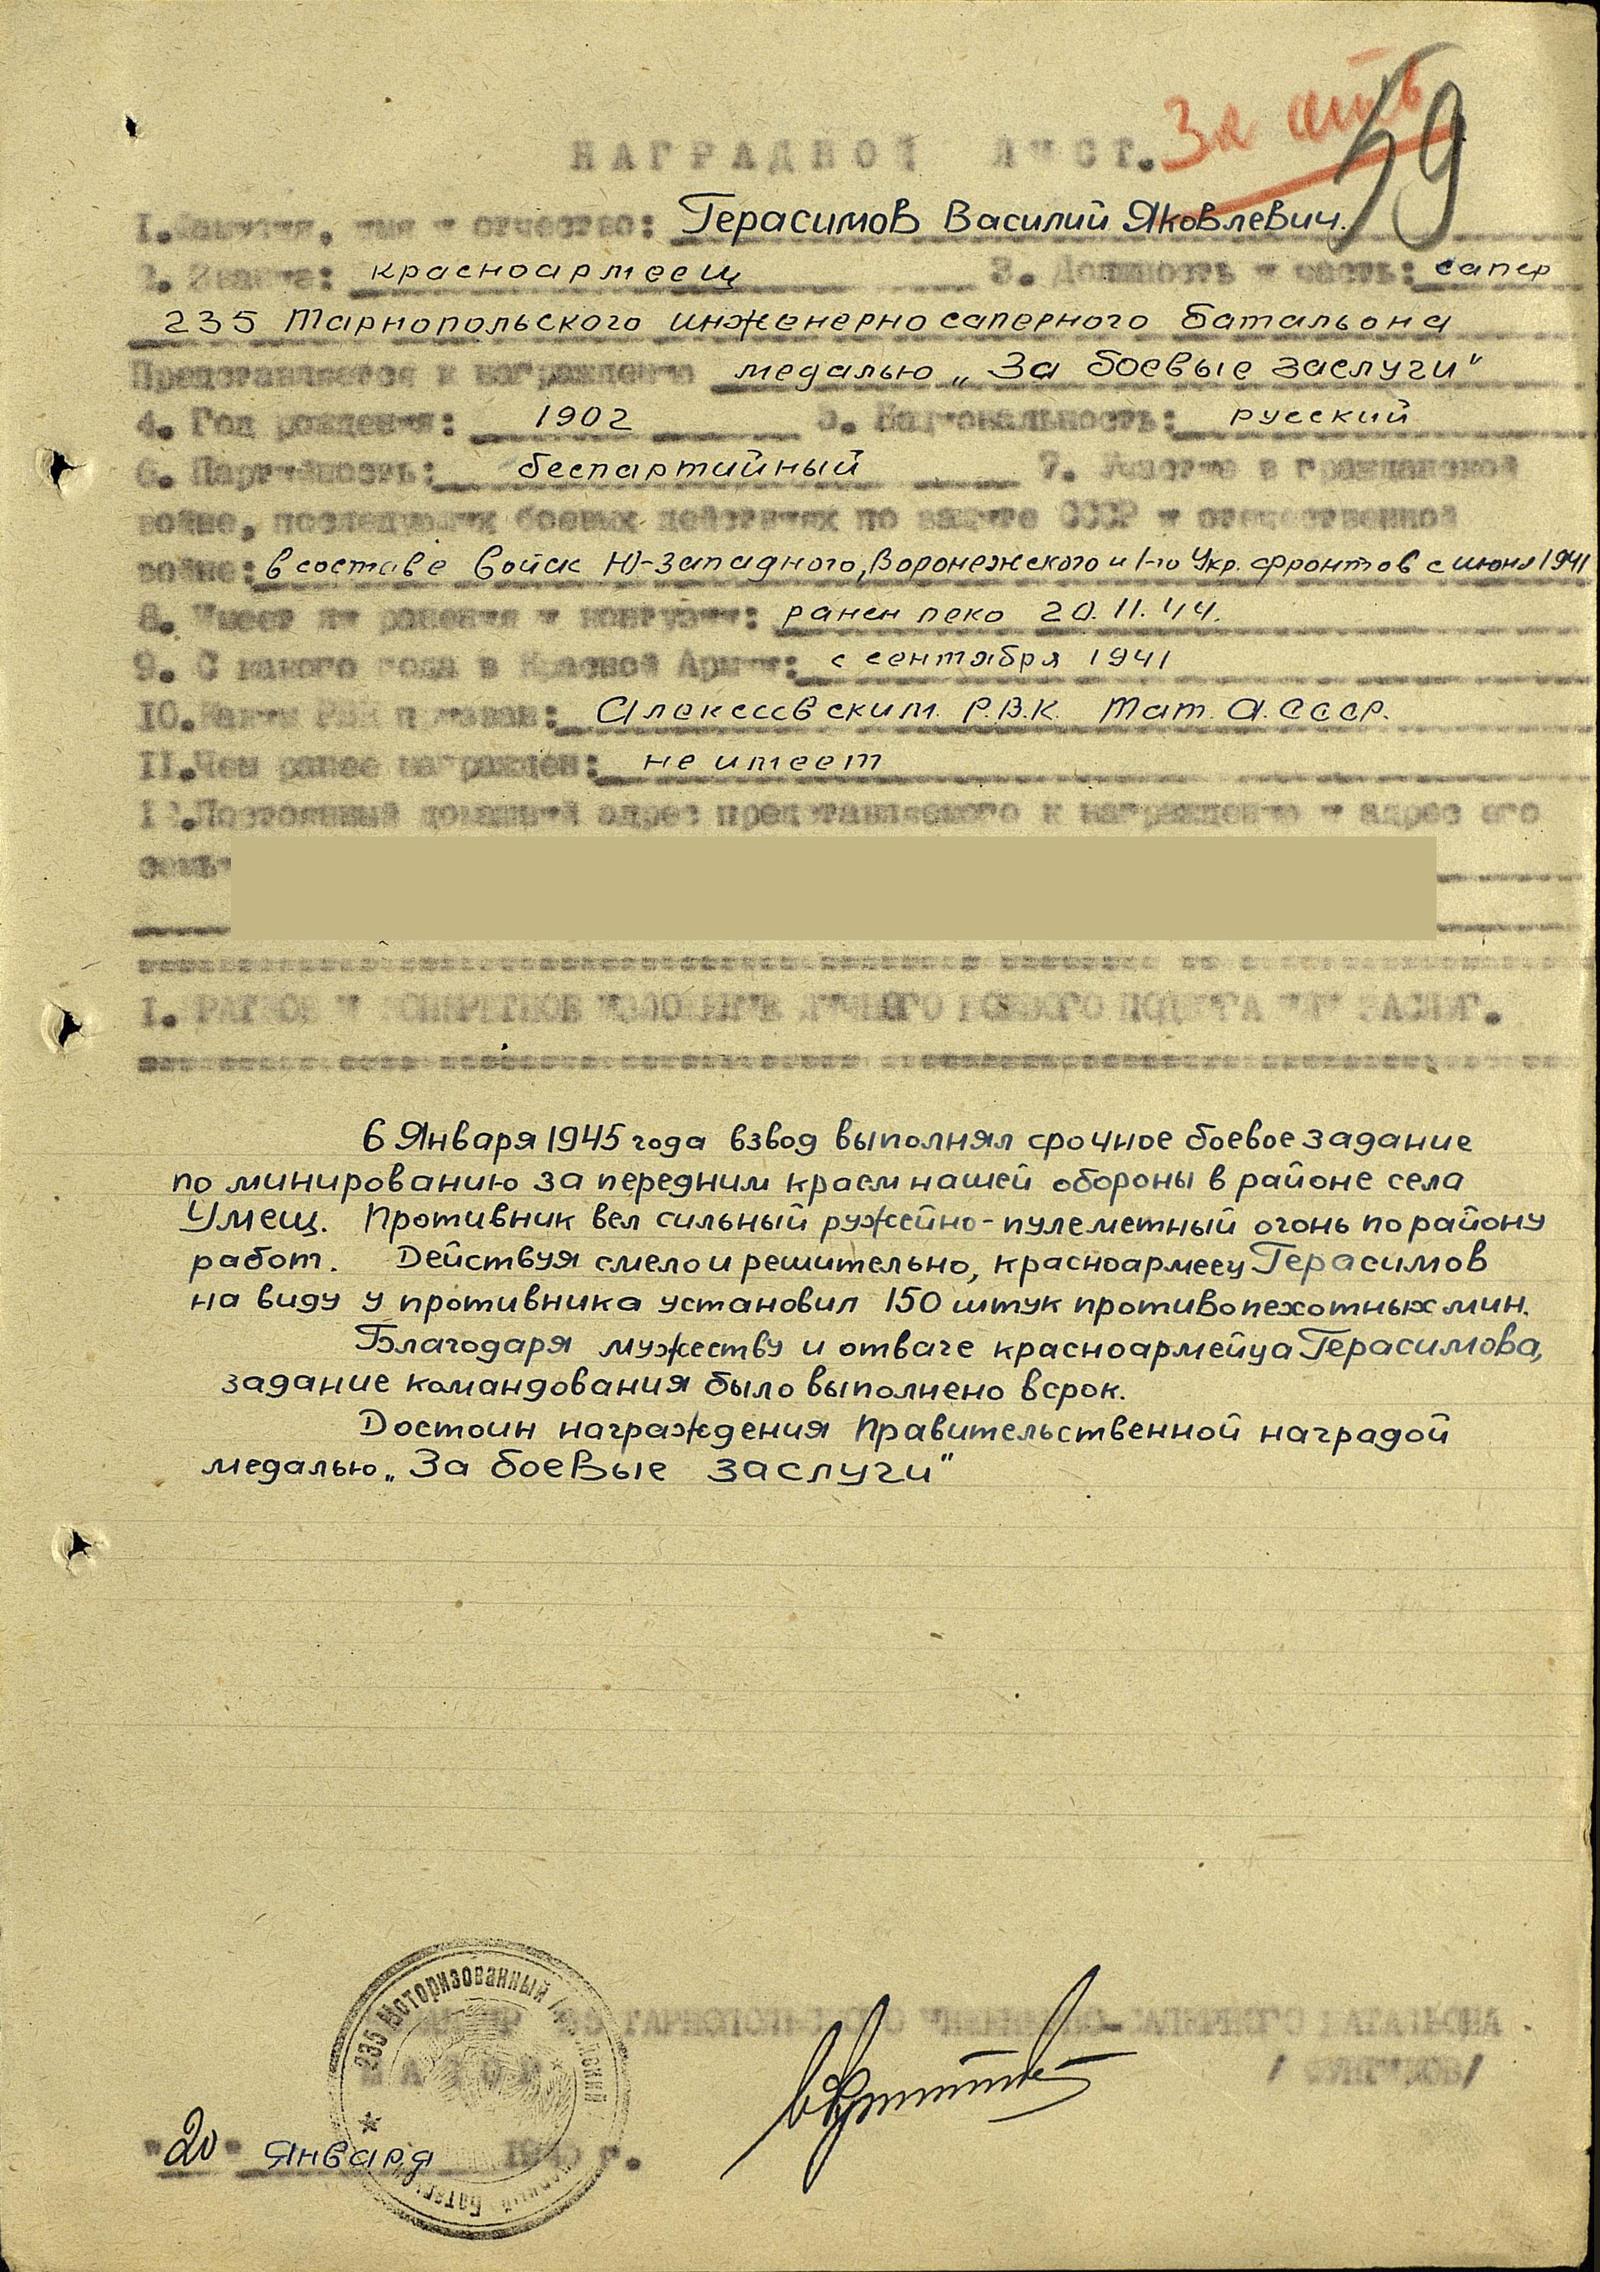 59
НАГРАДНОЙ ЛИСТ.
1.Фамилия, имя и отчество: Герасимов Василий Яковлевич.
2. Звание: красноармеец 3. Должность и часть: сапер
235 Тарнопольского инженерно саперного батальона
Представляется к награждению медалью „За боевые заслуги"
4. Год рождения: 1902 5. Национальность: русский
6. Партийность: беспартийный 7. Участие в гражданской
войне, последующих боевых действиях по защите СССР и отечественной
войне: в составе войск Ю-Западного, Воронежского и 1-го Укр. фронтов с июня 1941
8. Имеет ли ранения и контузии: ранен леко 20.11.44.
9. С какого года в Красной Армии: с сентября 1941
10.Каким РВК призван: Алексеевским Р.В.К. Тат. А.СССР.
11.Чем ранее награжден: не имеет
12.Постоянный домашний адрес представляемого к награждению и адрес его
семьи
I. КРАТКОЕ И КОНКРЕТНОЕ ИЗЛОЖЕНИЕ ЛИЧНОГО БОЕВОГО ПОДВИГА ИЛИ ЗАСЛУГ.
6 Января 1945 года взвод выполнял срочное боевое задание
по минированию за передним краем нашей обороны в районе села
Умещ. Противник вел сильный ружейно-пулеметный огонь по району
работ. Действуя смело и решительно, красноармеец Герасимов
на виду у противника установил 150 штук противопехотных мин.
Благодаря мужеству и отваге красноармейца Герасимова,
задание командования было выполнено в срок.
Достоин награждения Правительственной наградой
медалью „За боевые заслуги"
КОМАНДИР 235 ТАРНОПОЛЬСКОГО ИНЖЕНЕРНО-САПЕРНОГО БАТАЛЬОНА
МАЙОР
235 Моторизованный
"20" января 1945 г.